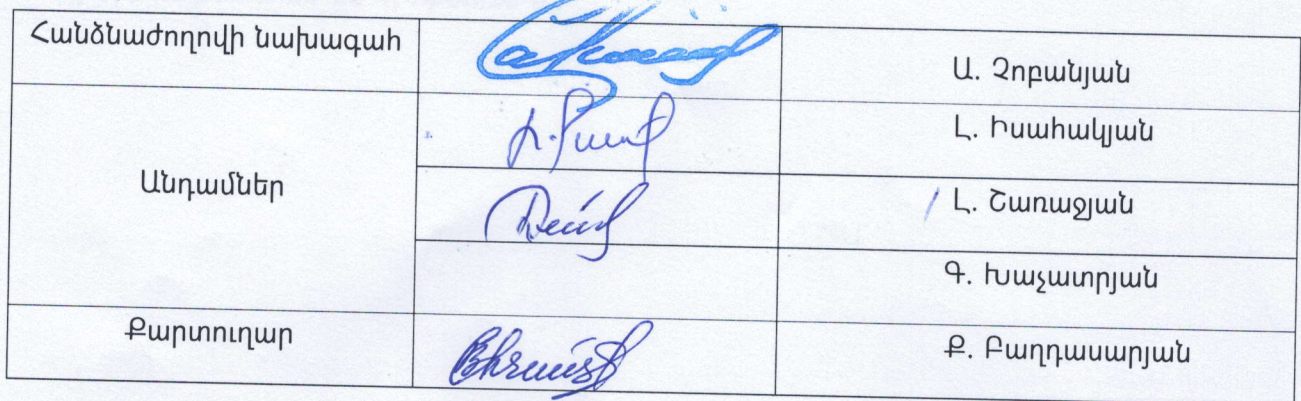 Հանձնաժողովի նախագահ
Ա. Չոբանյան
Անդամներ
Լ. Իսահակյան
Լ. Շառաջյան
Գ. Խաչատրյան
Քարտուղար
Ք. Բաղդասարյան